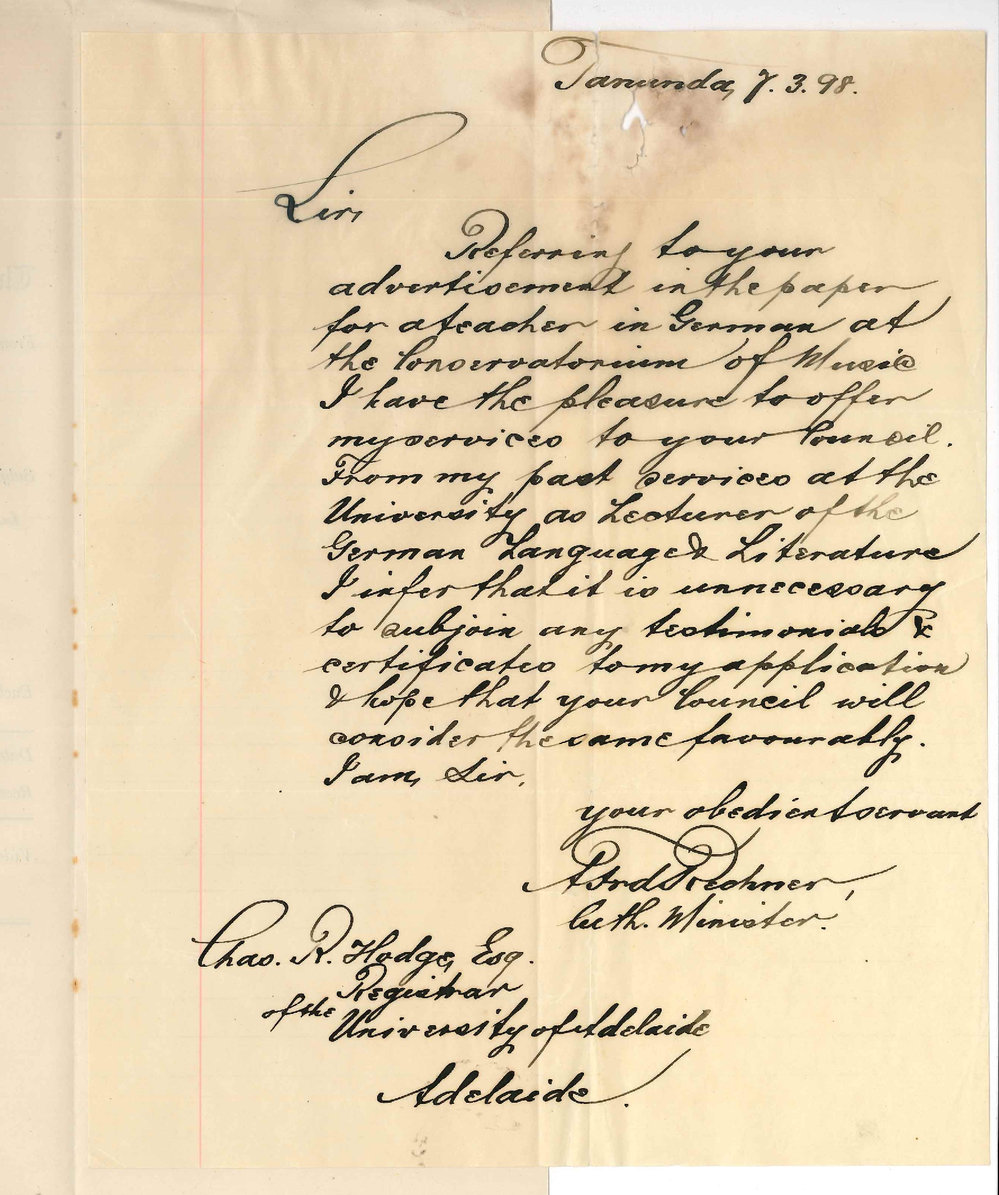 Tanunda, 7. 3. 98.
Sir,
Referring to your
advertisement in the paper
for a teacher in German at
the Conservatorium of Music
I have the pleasure to offer
my services to your Council.
From my past services at the
University as Lecturer of the
German Language & Literature
I infer that it is unnecessary
to subjoin any testimonials &
certificates to my application
& hope that your Council will
consider the same favourably.
I am, Sir,
your obedient servant
Rechner,
Luth. Minister.
Chas. R. Hodge, Esq.
Registrar
of the University of Adelaide
Adelaide.